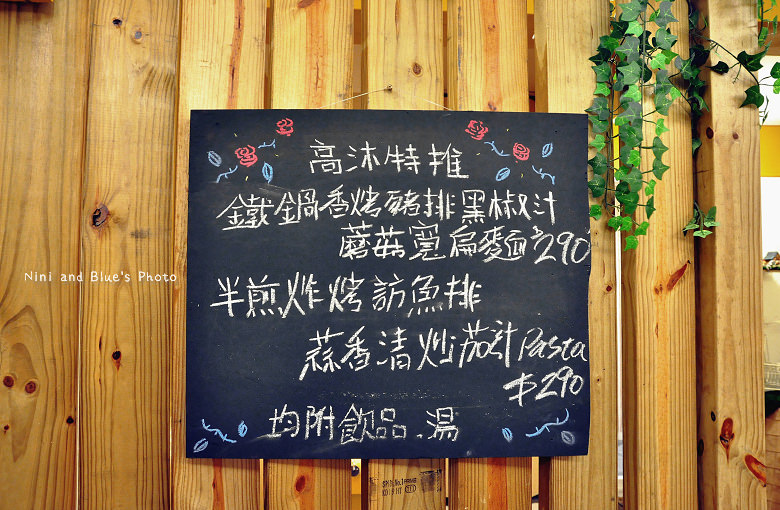 高沐特推
鐵鍋香烤豬排黑椒汁
蘑菇寬扁麵$290
半煎炸烤訪魚排
蒜香清炒茄汁Pasta
$290
均附飲品.湯
Nini and Blue's Photo